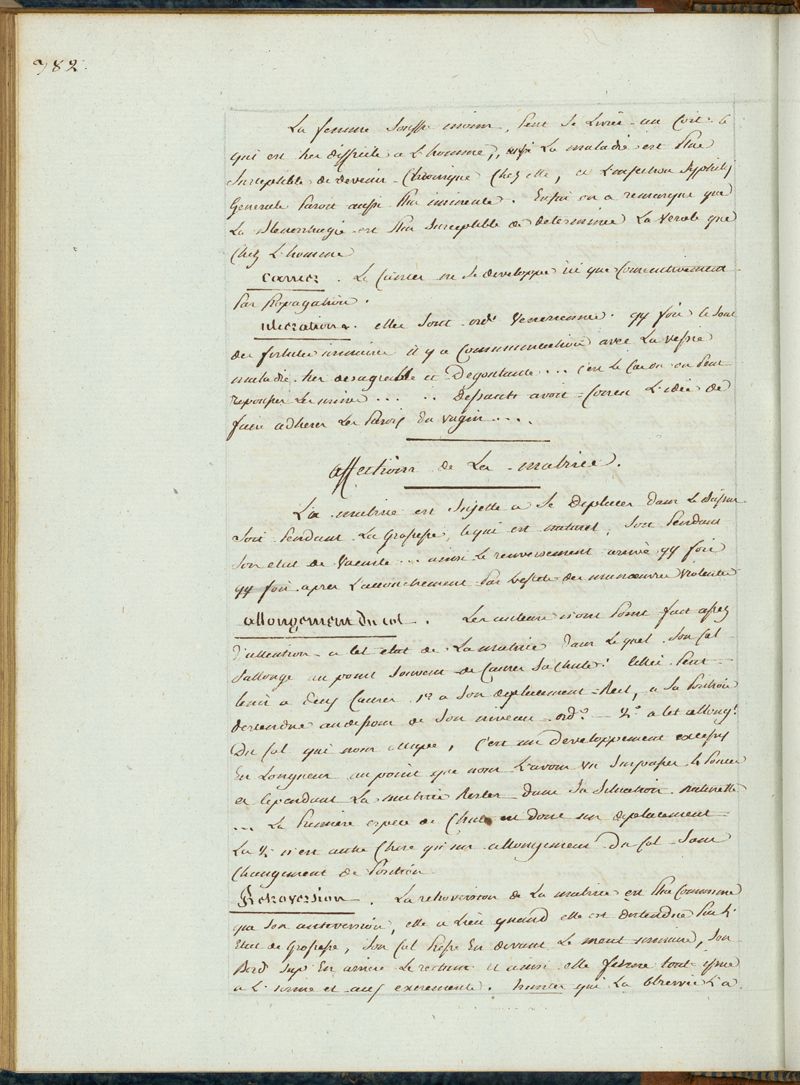 382.
La femme souffre moins, peut se livrer au Coit
qui est tres difficile a L'homme, La maladie est plus
susceptible de devenir Chronique Chez elle, et L'infection syphilit
Generale paroit aussi plus iminente. Enfin on a remarqué que
La Blenorrhagie est plus susceptible de determiner La verole que
Chez L'homme
Cancer. Le Cancer ne se developpe ici que Consecutivement
par propagation.
ulcerations. elles sont ord. Veneriennes. qq fois ce sont
des fistules urinaires il y a Communication avec La vessie
maladie tres desagreable et Degoutante ... c'est le Cas ou on peut
....... Dessault avoit Concu L'idée de
faire adherer Les parois du vagin ....
affections de La matrice.
La matrice est sujette a se deplacer dans le bassin
soit pendant La Grossesse, ce qui est naturel, soit pendant
son etat de Vacuité ... ainsi Le renversement arrive qq fois
qq fois apres L'accouchement par L'effet de manœuvres violentes
allongement du col. Les auteurs n'ont point fait assez
d'attention a cet etat de La matrice dans Lequel son Col
s'allonge au point souvent de Causer sa chute. Celle peut
tenir a deux Causes 1º a son deplacement Reel, a sa position
descendue au dessous de son niveau ord.º – 2.º a cet allong.t
Du Col qui nous occupe, C'est un developpement excessif
En Longueur au point que nous L'avons vu surpasser le pouce
et Cependant La matrice Rester dans sa situation naturelle
... La premiere espece de Chute est donc un deplacement
La 2.e n'est autre Chose qu'un allongement Du Col sans
Changement de position
Retroversion. La retroversion de La matrice est plus Commune
que son anteversion, elle a Lieu quand elle est distendue par L'
Etat de Grossesse, son Col presse En devant Le meat urinaire, son
Bord sup.r En arriere Le rectum et ainsi elle ferme tout issue
a L'urine et aux excrements. hunter qui La observée L'a